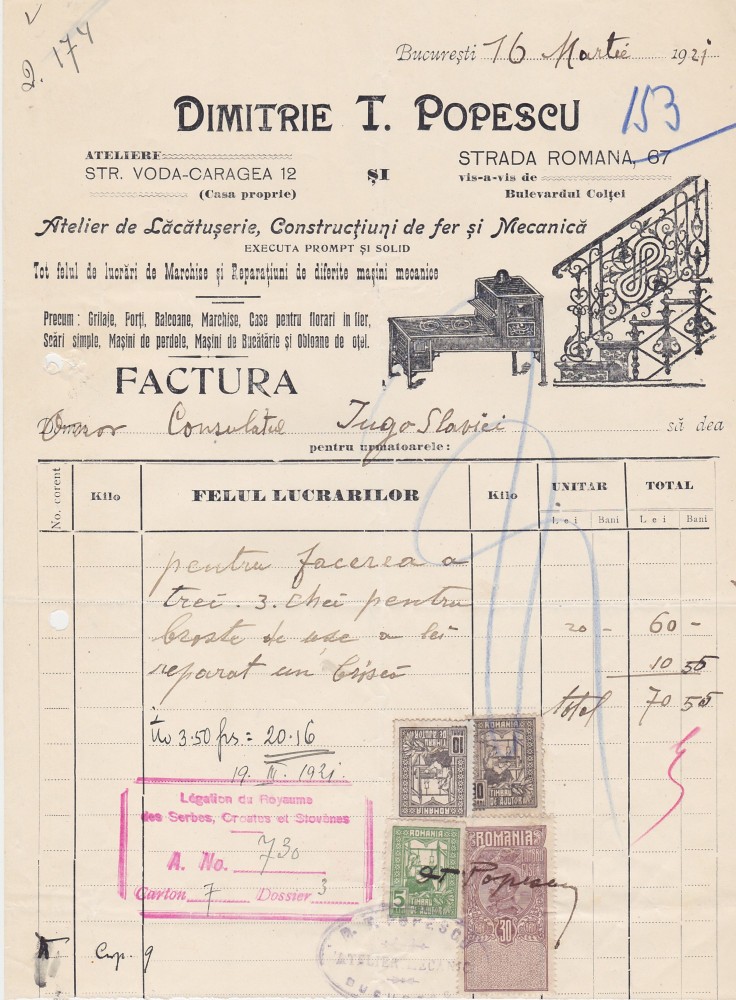 2. 174
București 16 Martie 1921
153
DIMITRIE T. POPESCU
ATELIERE
STR. VODA-CARAGEA 12
(Casa proprie)
ȘI
STRADA ROMANA, 67
vis-a-vis de
Bulevardul Colței
Atelier de Lăcătușerie, Construcțiuni de fer și Mecanică
EXECUTA PROMPT ȘI SOLID
Tot felul de lucrări de Marchise și Reparațiuni de diferite mașini mecanice
Precum: Grilaje, Porți, Balcoane, Marchise, Case pentru florari in fier,
Scări simple, Mașini de perdele, Mașini de Bucătărie și Obloane de oțel.
FACTURA
Onor Consulatul Jugo Slaviei să dea
pentru urmatoarele:
No. corent Kilo FELUL LUCRARILOR Kilo UNITAR TOTAL
Lei Bani Lei Bani
pentru facerea a
trei . 3. chei pentru
broste de use a lei 20 - 60 -
reparat un 10 55
total 70 55
3.50 frs = 20.16
19. III. 1921.
Légation du Royaume
des Serbes, Croates et Slovènes
A. No. 730
Carton 7 Dossier 3
ROMANIA
TIMBRU DE AJUTOR
10
ROMANIA
TIMBRU DE AJUTOR
10
ROMANIA
5
TIMBRU DE AJUTOR
ROMANIA
30
DT Popescu
D. T. POPESCU
ATELIER MECANIC
BUCURESTI
9